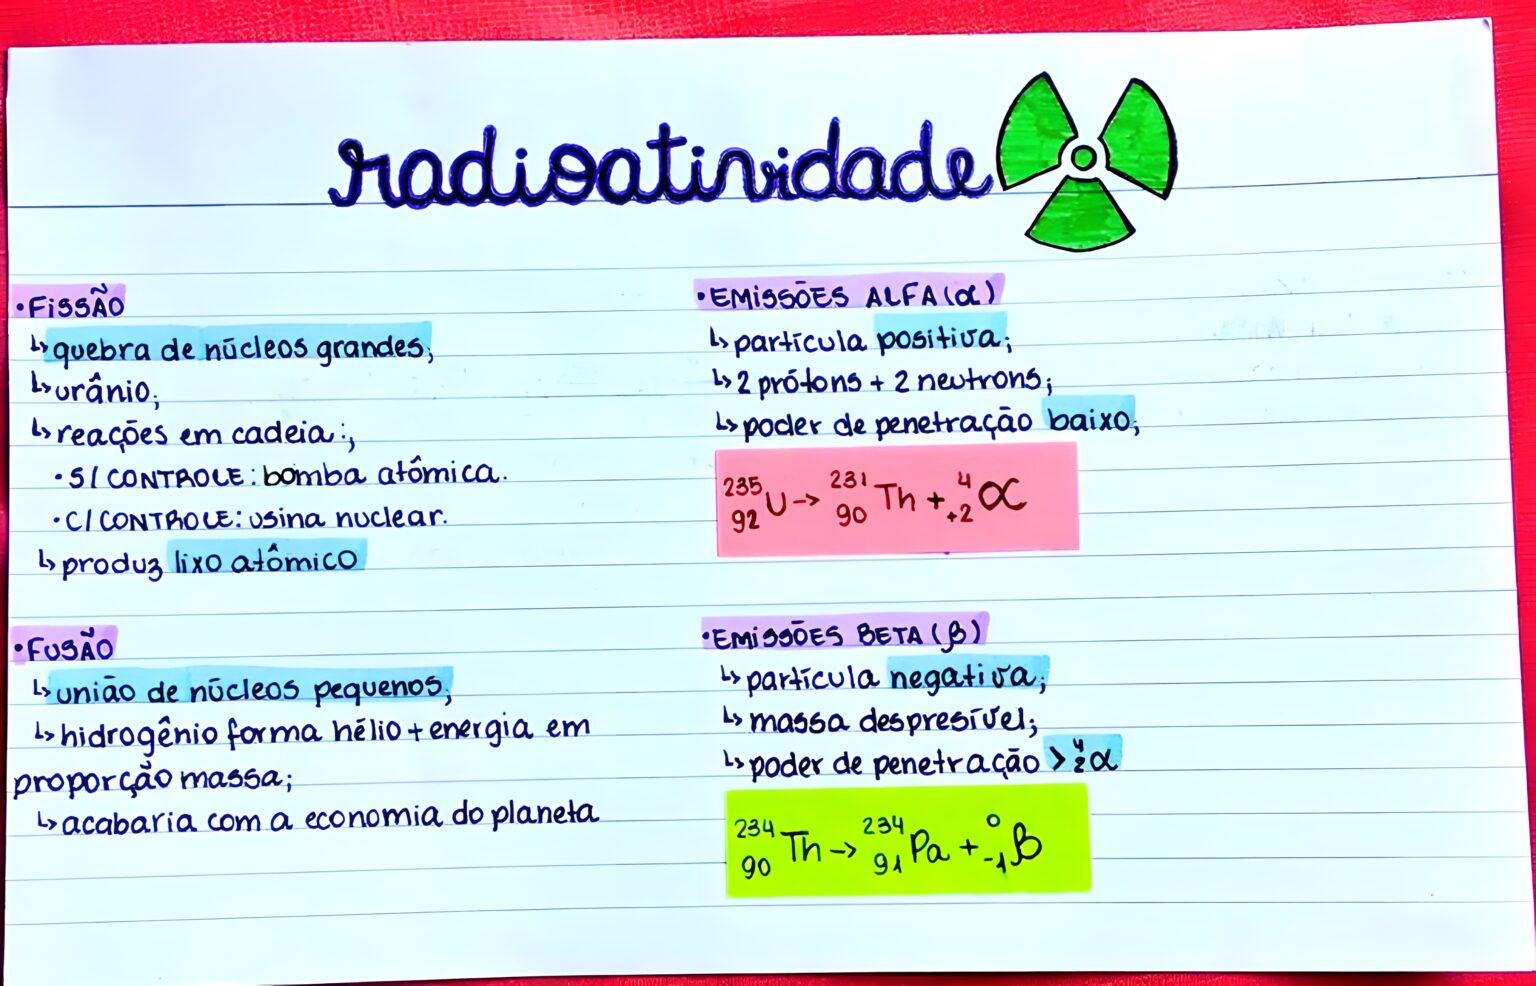 radioatividade
•FISSÃO
↳quebra de núcleos grandes;
↳urânio;
↳reações em cadeia:;
•S/ CONTROLE: bomba atômica.
•C/ CONTROLE: usina nuclear.
↳produz lixo atômico
•FUSÃO
↳união de núcleos pequenos;
↳hidrogênio forma hélio + energia em
proporção massa;
↳acabaria com a economia do planeta
•EMISSÕES ALFA (α)
↳partícula positiva;
↳2 prótons + 2 neutrons;
↳poder de penetração baixo;
²³⁵₉₂U → ²³¹₉₀Th + ⁴₊₂α
•EMISSÕES BETA (β)
↳partícula negativa;
↳massa despresível;
↳poder de penetração > ⁴₂α
²³⁴₉₀Th → ²³⁴₉₁Pa + ⁰₋₁β